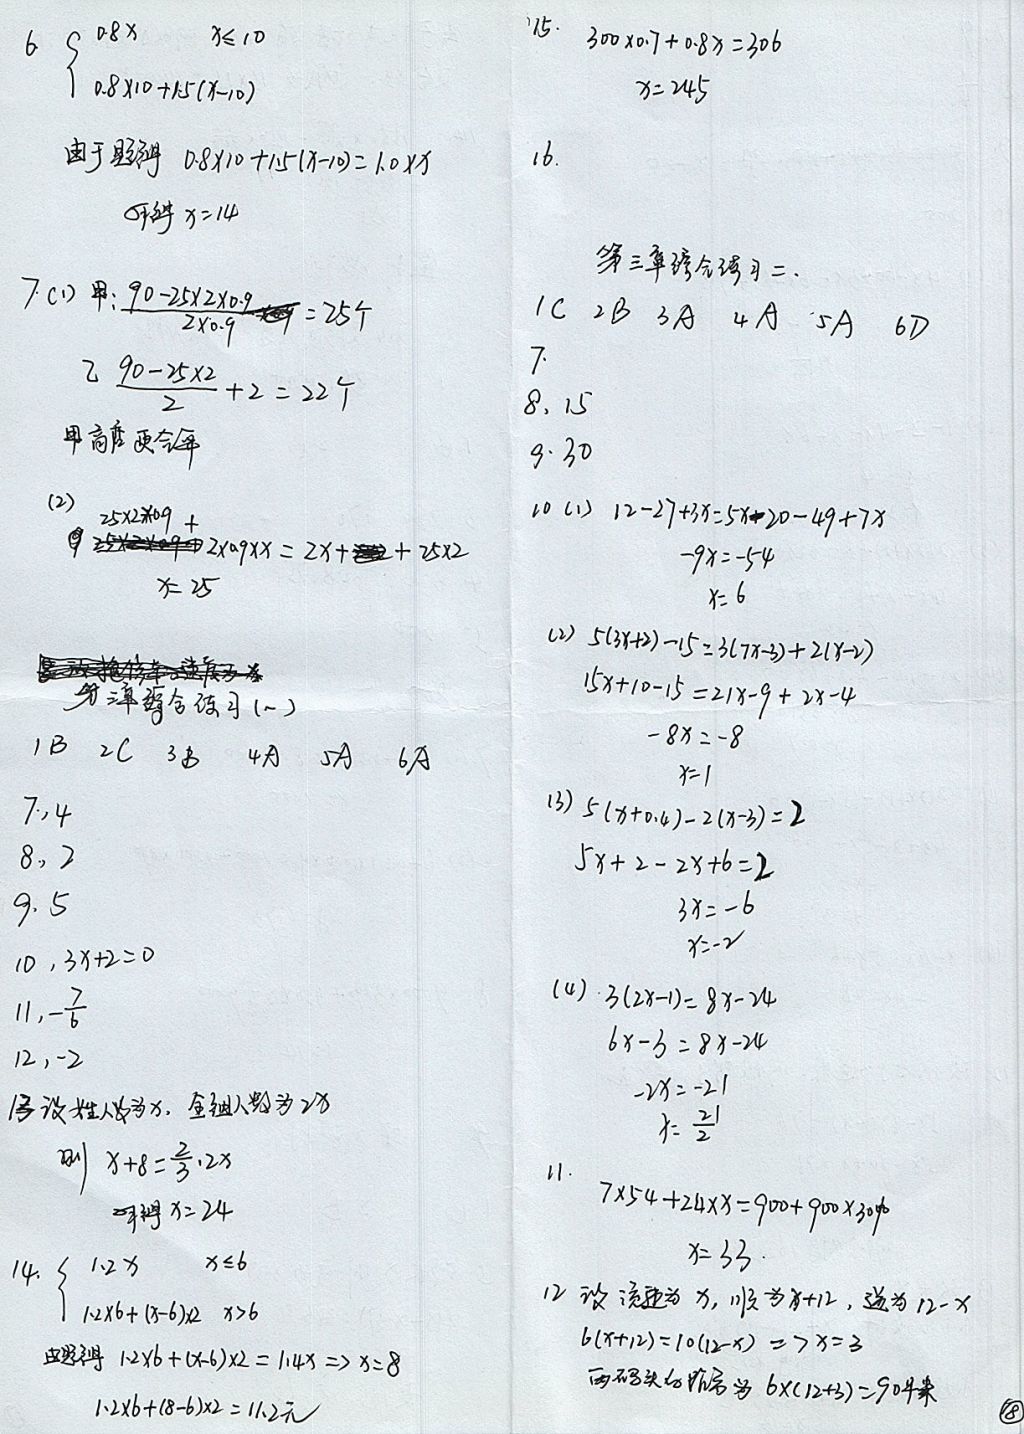 6 { 0.8x x≤10
0.8×10+1.5(x-10)
由于题得 0.8×10+1.5(x-10)=1.0×x
可得 x=14
7.(1) 甲: (90-25×2×0.9)/(2×0.9) = 25个
乙 (90-25×2)/2 + 2 = 22个
甲商店更合算
(2)
25×2×0.9 + 2×0.9×x = 2x + 25×2
x=25
第三章综合练习(一)
1B 2C 3B 4A 5A 6A
7, 4
8, 2
9. 5
10, 3x+2=0
11, -7/6
12, -2
13 设女生人数为x, 全组人数为2x
则 x+8=2/3·2x
可得 x=24
14. { 1.2x x≤6
1.2×6+(x-6)×2 x>6
由题得 1.2×6+(x-6)×2=1.4x => x=8
1.2×6+(8-6)×2=11.2元
15. 300×0.7+0.8x=306
x=245
16.
第三章综合练习二.
1C 2B 3A 4A 5A 6D
7.
8, 15
9. 30
10 (1) 12-27+3x=5x-20-49+7x
-9x=-54
x=6
(2) 5(3x+2)-15=3(7x-3)+2(x-2)
15x+10-15=21x-9+2x-4
-8x=-8
x=1
(3) 5(x+0.4)-2(x-3)=2
5x+2-2x+6=2
3x=-6
x=-2
(4) 3(2x-1)=8x-24
6x-3=8x-24
-2x=-21
x=21/2
11.
7×54+24×x=900+900×30%
x=33.
12 设流速为x, 顺为x+12, 逆为12-x
6(x+12)=10(12-x) => x=3
两码头的距离为 6×(12+3)=90千米
18